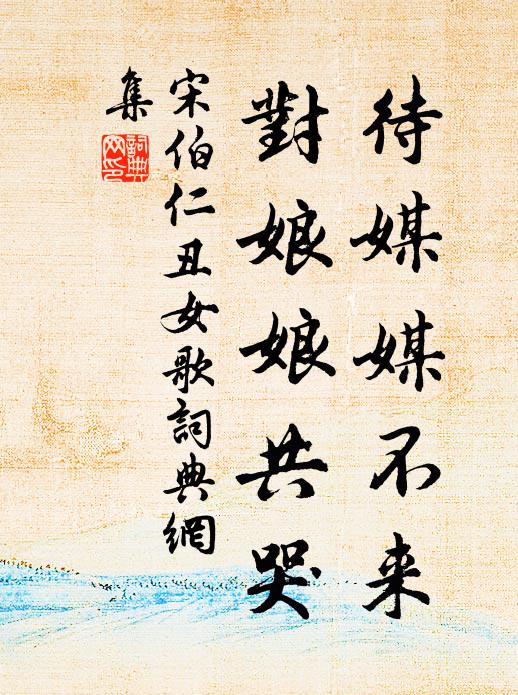 待媒媒不来
對娘娘共哭
宋伯仁丑女歌詞典網
集
詞典网印